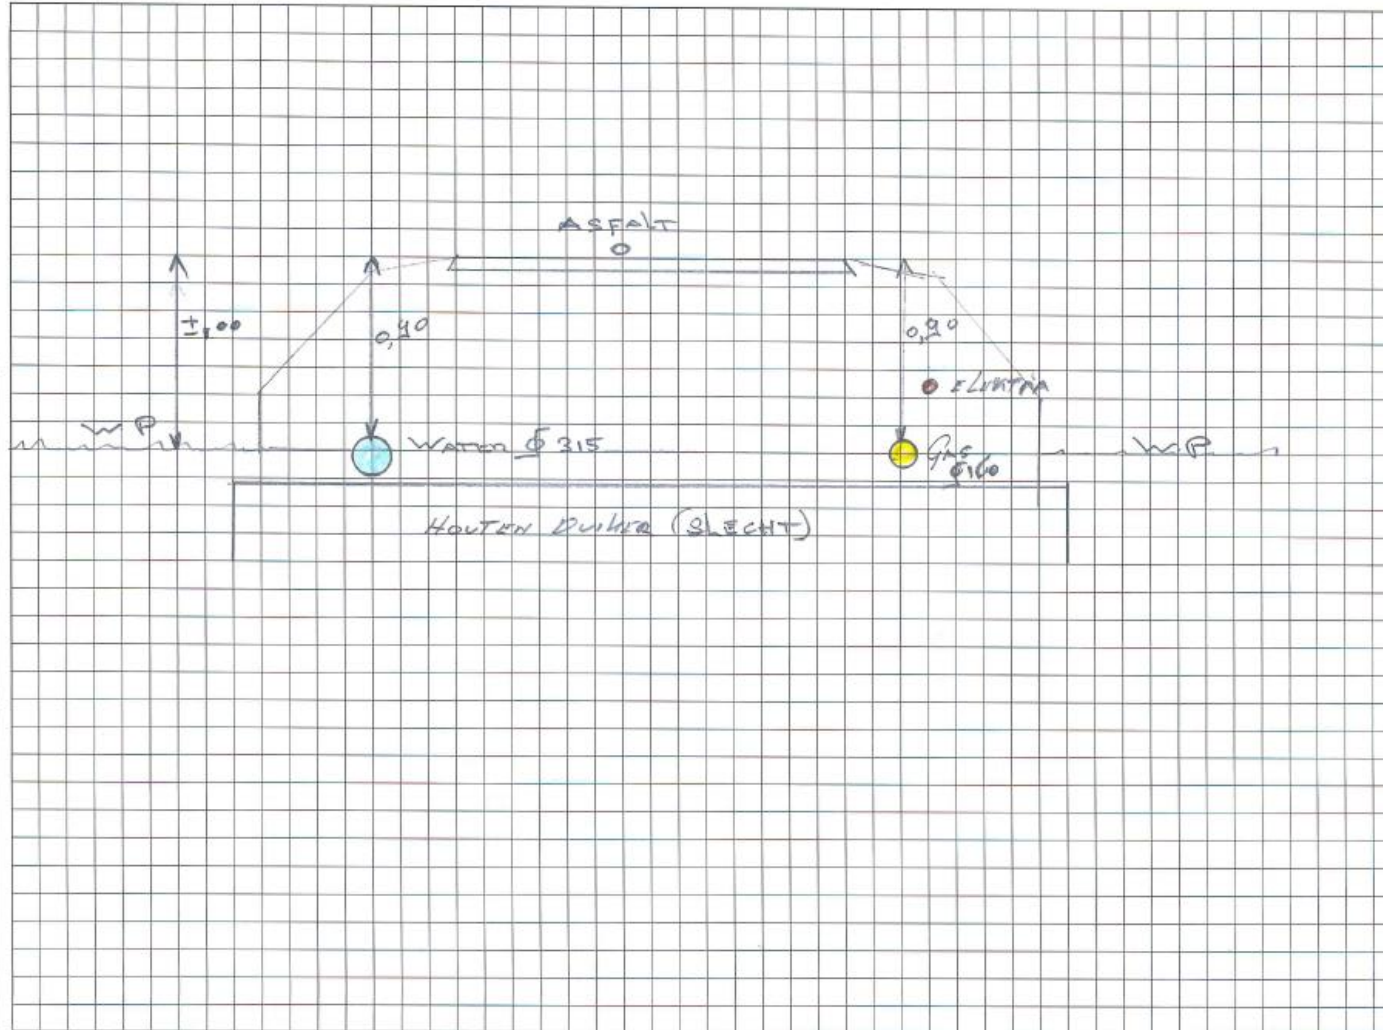 ASFALT
±1,00
0,90
0,90
ELEKTRA
WP
WATER Ø 315
GAS
Ø160
WP
HOUTEN DUIKER (SLECHT)